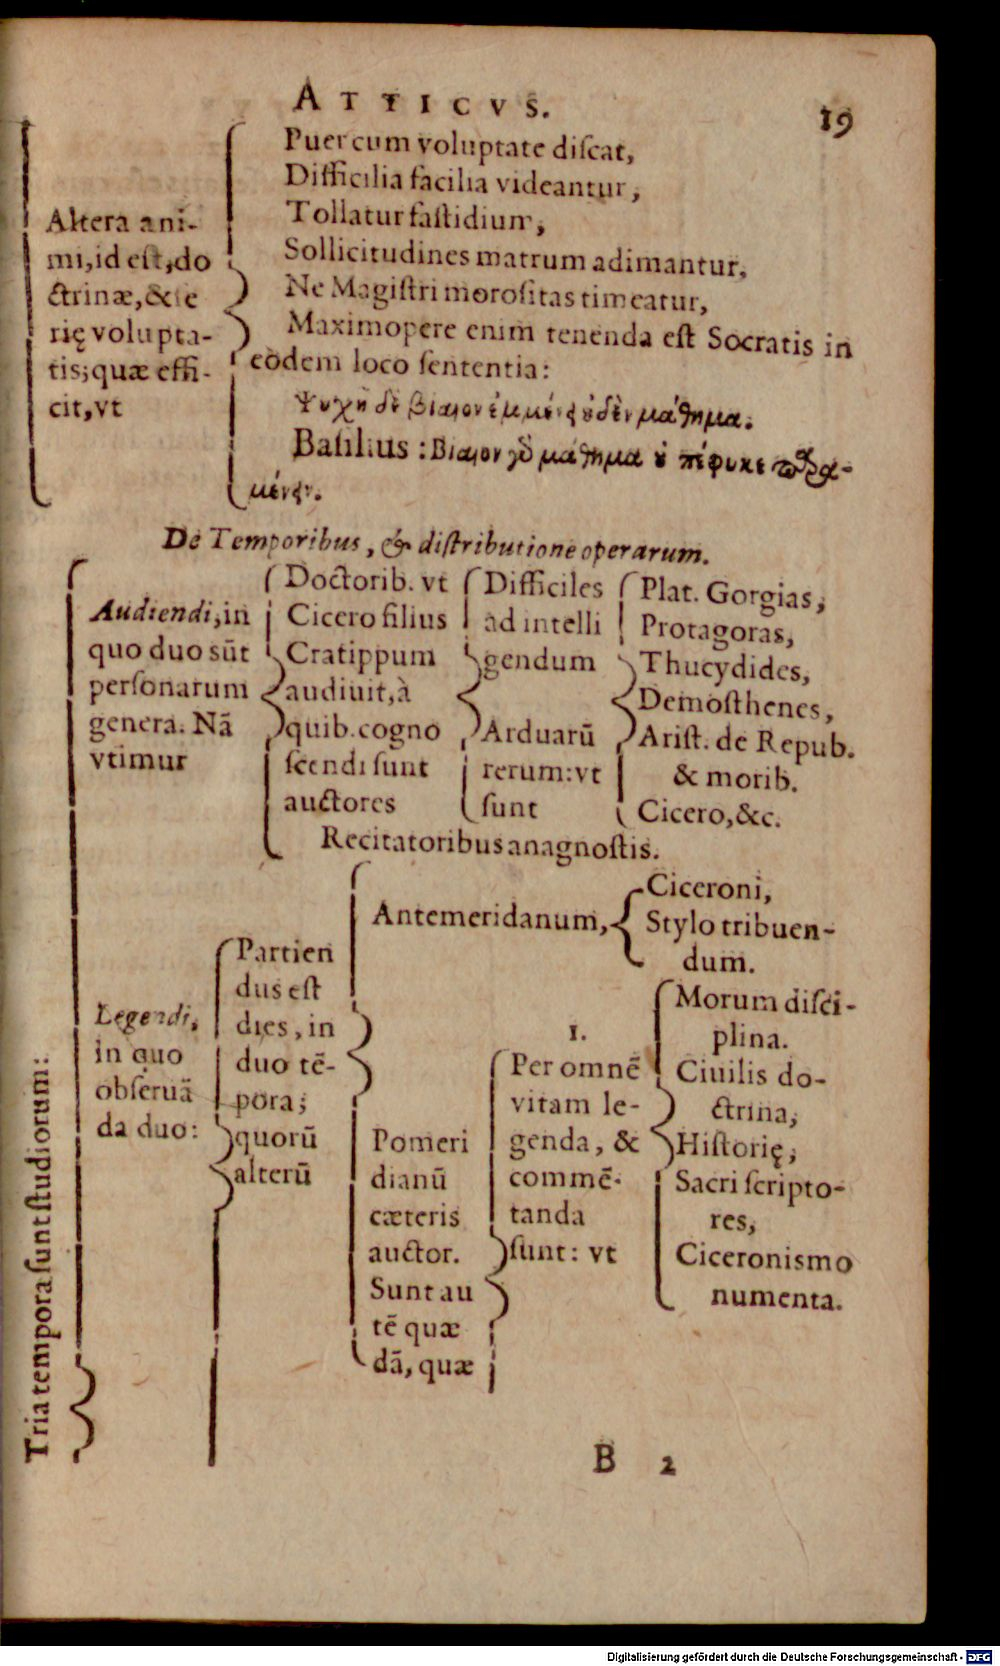 ATTICVS.
19
Altera ani-
mi, id est, do
ctrinæ, & se
rię volupta-
tis; quæ effi-
cit, vt
Puer cum voluptate discat,
Difficilia facilia videantur,
Tollatur fastidium,
Sollicitudines matrum adimantur,
Ne Magistri morositas timeatur,
Maximopere enim tenenda est Socratis in
eodem loco sententia:
Ψυχῇ δὲ βίαιον ἔμμενον ȣ̓δὲν μάθημα.
Basilius : Βίαιον γὸ μάθημα ȣ̓ πέφυκε παρα-
μένειν.
De Temporibus, & distributione operarum.
Tria tempora sunt studiorum:
Audiendi, in
quo duo sūt
personarum
genera. Nā
vtimur
Doctorib. vt
Cicero filius
Cratippum
audiuit, à
quib. cogno
scendi sunt
auctores
Difficiles
ad intelli
gendum
Arduarū
rerum: vt
sunt
Plat. Gorgias,
Protagoras,
Thucydides,
Demosthenes,
Arist. de Repub.
& morib.
Cicero, &c.
Recitatoribus anagnostis.
Legendi,
in quo
obseruā
da duo:
Partien
dus est
dies, in
duo tē-
pora;
quorū
alterū
Antemeridanum,
Ciceroni,
Stylo tribuen-
dum.
Pomeri
dianū
cæteris
auctor.
Sunt au
tē quæ
dā, quæ
1.
Per omnē
vitam le-
genda, &
commē-
tanda
sunt: vt
Morum disci-
plina.
Ciuilis do-
ctrina,
Historię,
Sacri scripto-
res,
Ciceronis mo
numenta.
B 2
Digitalisierung gefördert durch die Deutsche Forschungsgemeinschaft - DFG